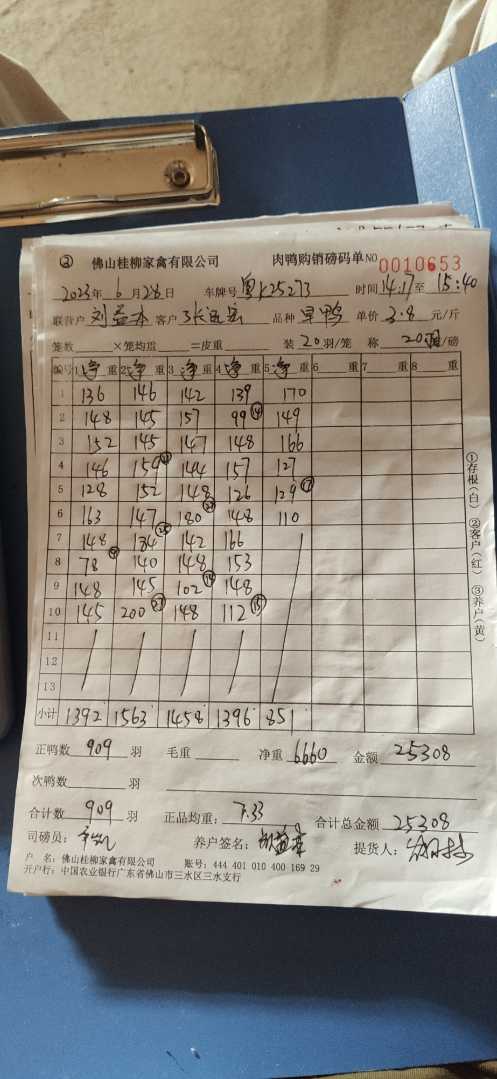 ② 佛山桂柳家禽有限公司 肉鸭购销磅码单 NO 0010653
2023年 6月28日 车牌号 粤K25273 时间 14:17 至 15:40
联营户 刘益本 客户 品种 旱鸭 单价 3.8 元/斤
笼数 ×笼均重 =皮重 装 20 羽/笼 称 20羽/磅
编号 1 净 重 2 净 重 3 净 重 4 净 重 5 净 重 6 重 7 重 8 重
1 136 146 142 139 170
2 148 145 157 99 149
3 152 145 147 148 166
4 146 159 144 157 127
5 128 152 148 126 129 ⑰
6 163 147 180 148 110
7 148 134 142 166
8 78 140 148 153
9 148 145 102 148
10 145 200 148 112 ⑮
11
12
13
小计 1392 1563 1458 1396 851
正鸭数 909 羽 毛重 净重 6660 金额 25308
次鸭数 羽
合计数 909 羽 正品均重: 7.33 合计总金额 25308
司磅员: 养户签名: 提货人:
户 名: 佛山桂柳家禽有限公司 账号: 444 401 010 400 169 29
开户行: 中国农业银行广东省佛山市三水区三水支行
①存根(白) ②客户(红) ③养户(黄)